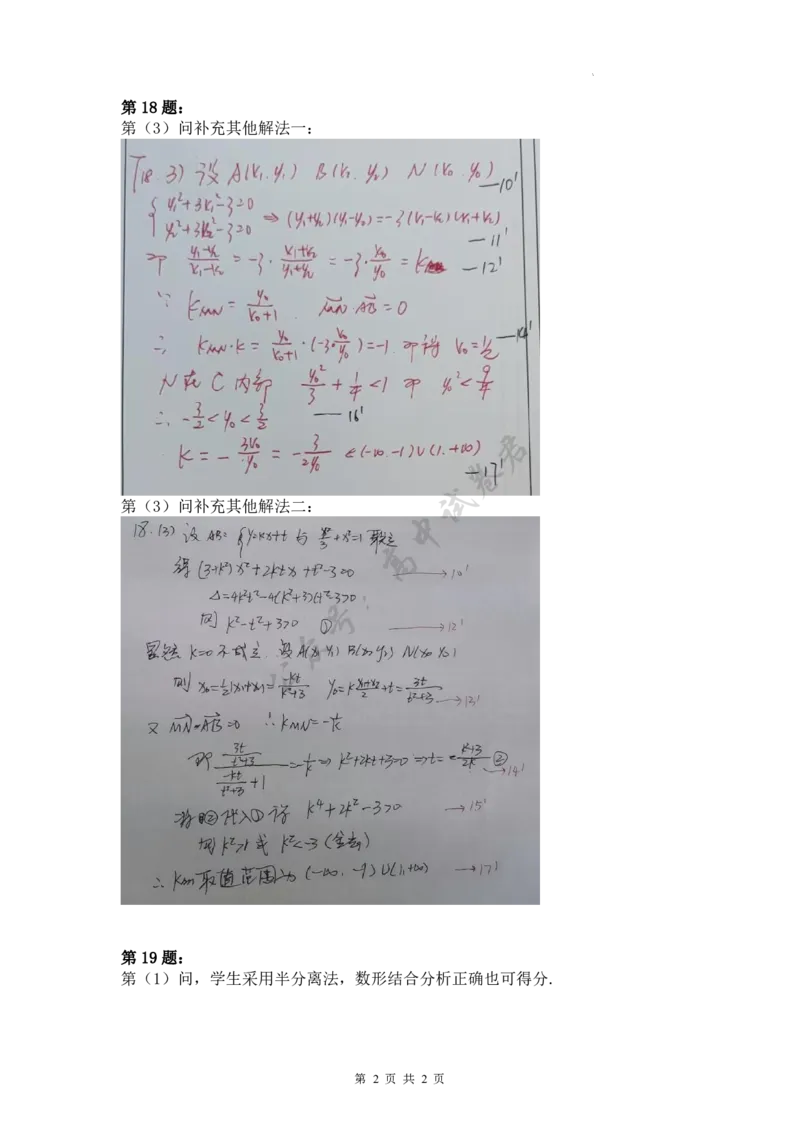 第 18 题：
第（3）问补充其他解法一：
T18.3) 设 A(x₁,y₁) B(x₂,y₂) N(x₀,y₀) —10'
{ y₁²+3x₁²-3=0
y₂²+3x₂²-3=0 ⇒ (y₁+y₂)(y₁-y₂)=-3(x₁-x₂)(x₁+x₂) —11'
即 (y₁-y₂)/(x₁-x₂) = -3·(x₁+x₂)/(y₁+y₂) = -3·x₀/y₀ = k —12'
∵ k_MN = y₀/(x₀+1) . MN·AB=0
∴ k_MN·k = y₀/(x₀+1)·(-3·x₀/y₀)=-1. 即得 x₀=½ —14'
N在C内部 y₀²/3 + 1/4 <1 即 y₀²<9/4
∴ -3/2<y₀<3/2 —16'
k = -3x₀/y₀ = -3/2y₀ ∈(-∞,-1)∪(1,+∞) —17'
第（3）问补充其他解法二：
18.(3) 设 AB: {y=kx+t 与 y²/3+x²=1 联立
得 (3+k²)x²+2ktx+t²-3=0 →10'
Δ=4k²t²-4(k²+3)(t²-3)>0
则 k²-t²+3>0 ① →12'
k=0不成立. 设A(x₁,y₁) B(x₂,y₂) N(x₀,y₀)
则 x₀=½(x₁+x₂)=-kt/(k²+3) y₀=k(x₁+x₂)/2+t=3t/(t²+3) →13'
又 MN·AB=0 ∴k_MN=-1/k
即 (3t/(t²+3))/(-kt/(t²+3)+1)=-1/k ⇒ k²+2kt+3=0 ⇒t=-(k²+3)/2k ② →14'
将②代入①得 k⁴+2k²-3>0 →15'
则 k²>1 或 k²<-3 (舍去)
∴ k的取值范围为 (-∞,-1)∪(1,+∞) →17'
高中试卷君
第 19 题：
第（1）问，学生采用半分离法，数形结合分析正确也可得分.
第 2 页 共 2 页